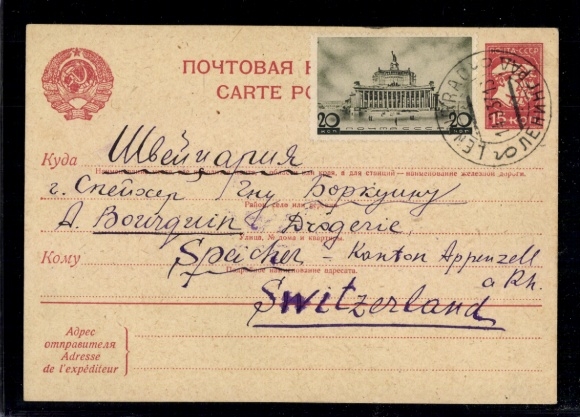 ПОЧТОВАЯ
CARTE PO
ПОЧТА СССР
20 20
КОП КОП
15 КОП
LENINGRAD
ЛЕНИНГРАД
Куда Швейцария
края, а для станций—наименование железной дороги.
г. Спейхер Гну Боркуину
Район, село или деревня.
A. Bourquin Drogerie,
Улица, № дома и квартиры.
Кому Speicher – Kanton Appenzell
Подробное наименование адресата.
a Rh.
Switzerland
Адрес
отправителя
Adresse
de l'expéditeur